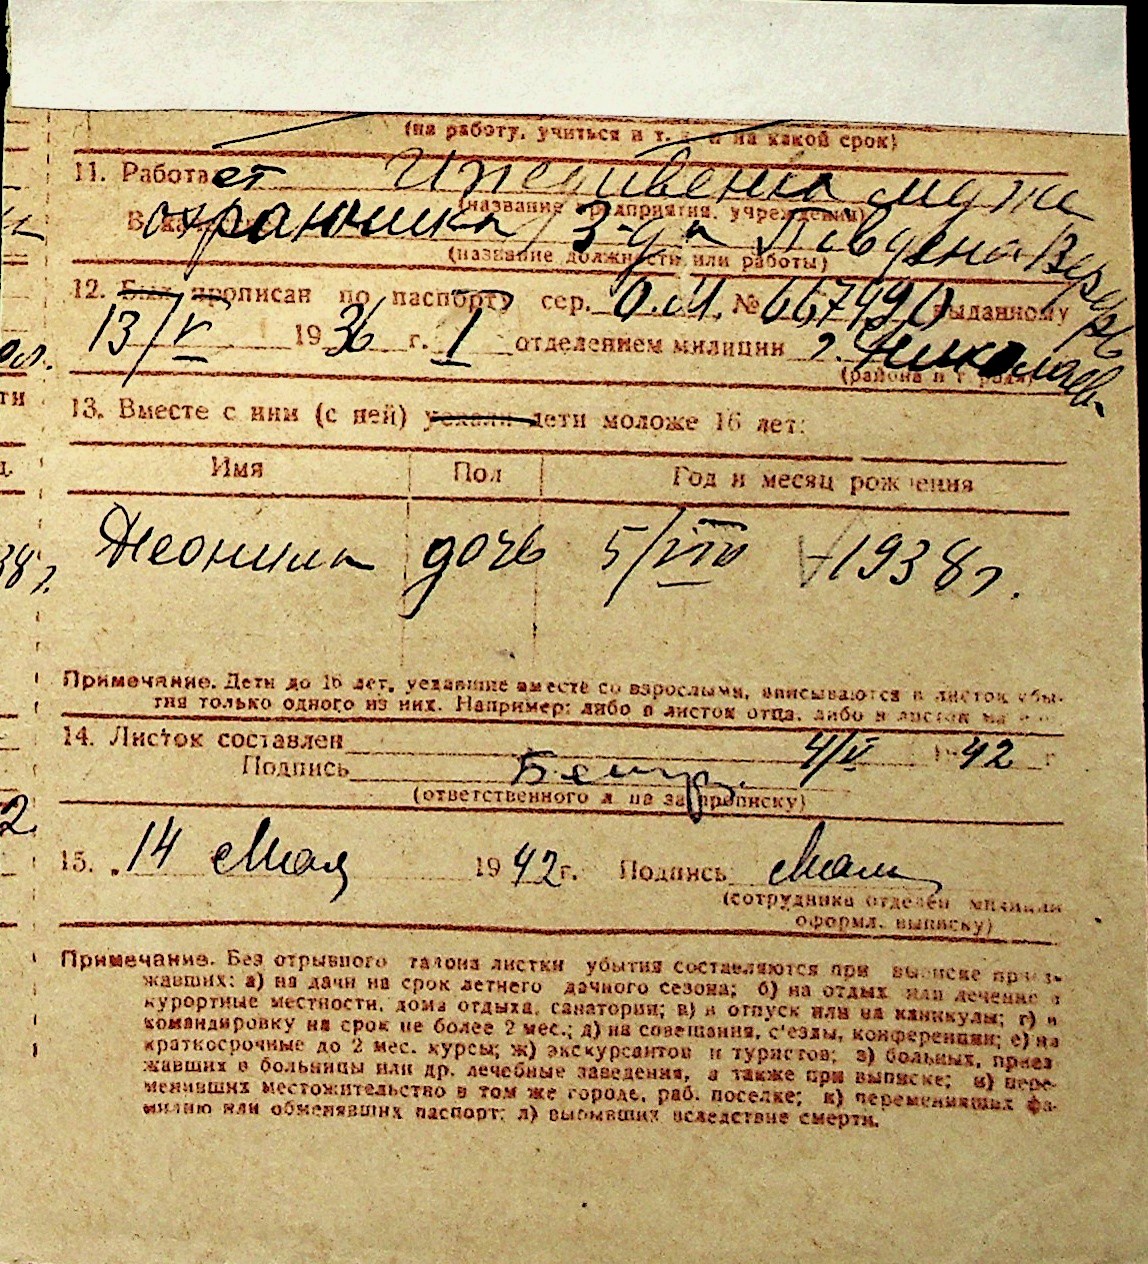 (на работу, учиться и т. д. и на какой срок)
11. Работает Иждивенка мужа
(название предприятия, учреждения)
охранника з-да
(название должности или работы)
12. Был прописан по паспорту сер. № 667490 выданному
13/V 1936 г. I отделением милиции г. Николаев
(района и города)
13. Вместе с ним (с ней) уехали дети моложе 16 лет:
Имя Пол Год и месяц рождения
Леонила дочь 5/VIII 1938 г.
Примечание. Дети до 16 лет, уехавшие вместе со взрослыми, вписываются в листок убы-
тия только одного из них. Например: либо в листок отца, либо в листок
14. Листок составлен 4/V 1942 г
Подпись
(ответственного л на за прописку)
15. 14 Мая 1942 г. Подпись
(сотрудника отделен милиции
оформл. выписку)
Примечание. Без отрывного талона листки убытия составляются при выписке приез-
жавших: а) на дачи на срок летнего дачного сезона; б) на отдых или лечение в
курортные местности, дома отдыха, санатории; в) в отпуск или на каникулы; г) в
командировку на срок не более 2 мес.; д) на совещания, с'езды, конференции; е) на
краткосрочные до 2 мес. курсы; ж) экскурсантов и туристов; з) больных, приез
жавших в больницы или др. лечебные заведения, а также при выписке; и) пере-
менивших местожительство в том же городе, раб. поселке; к) переменивших фа-
милию или обменявших паспорт; л) выбывших вследствие смерти.